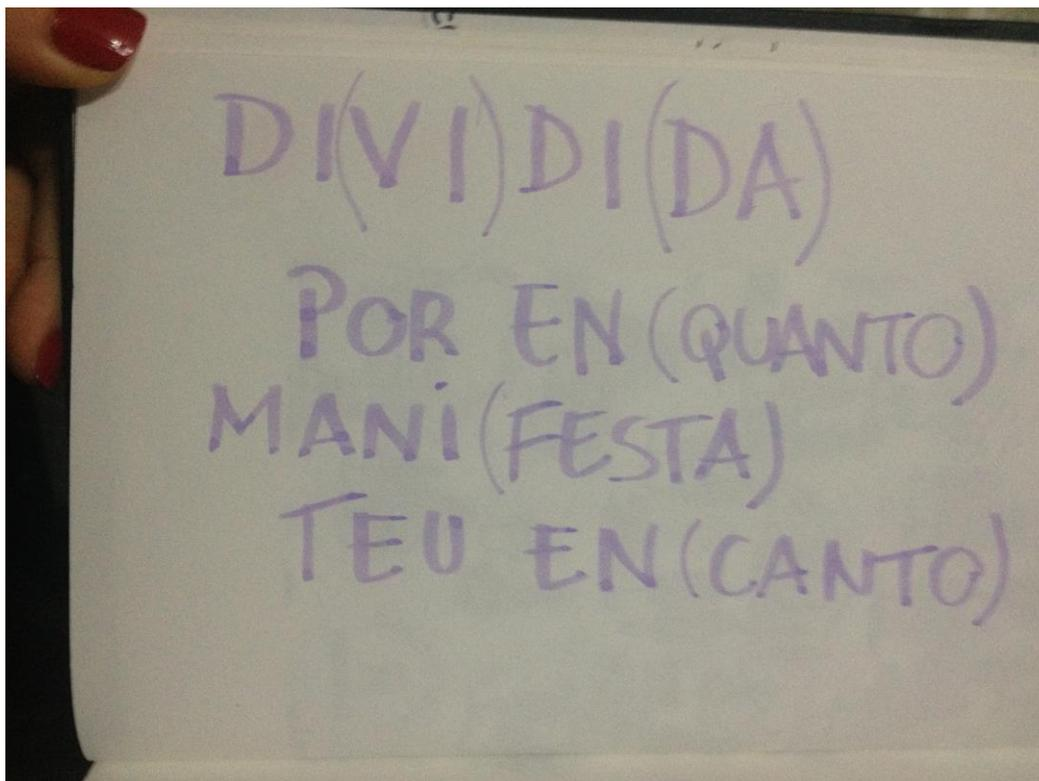 DI(VI)DI(DA)
POR EN(QUANTO)
MANi(FESTA)
TEU EN(CANTO)